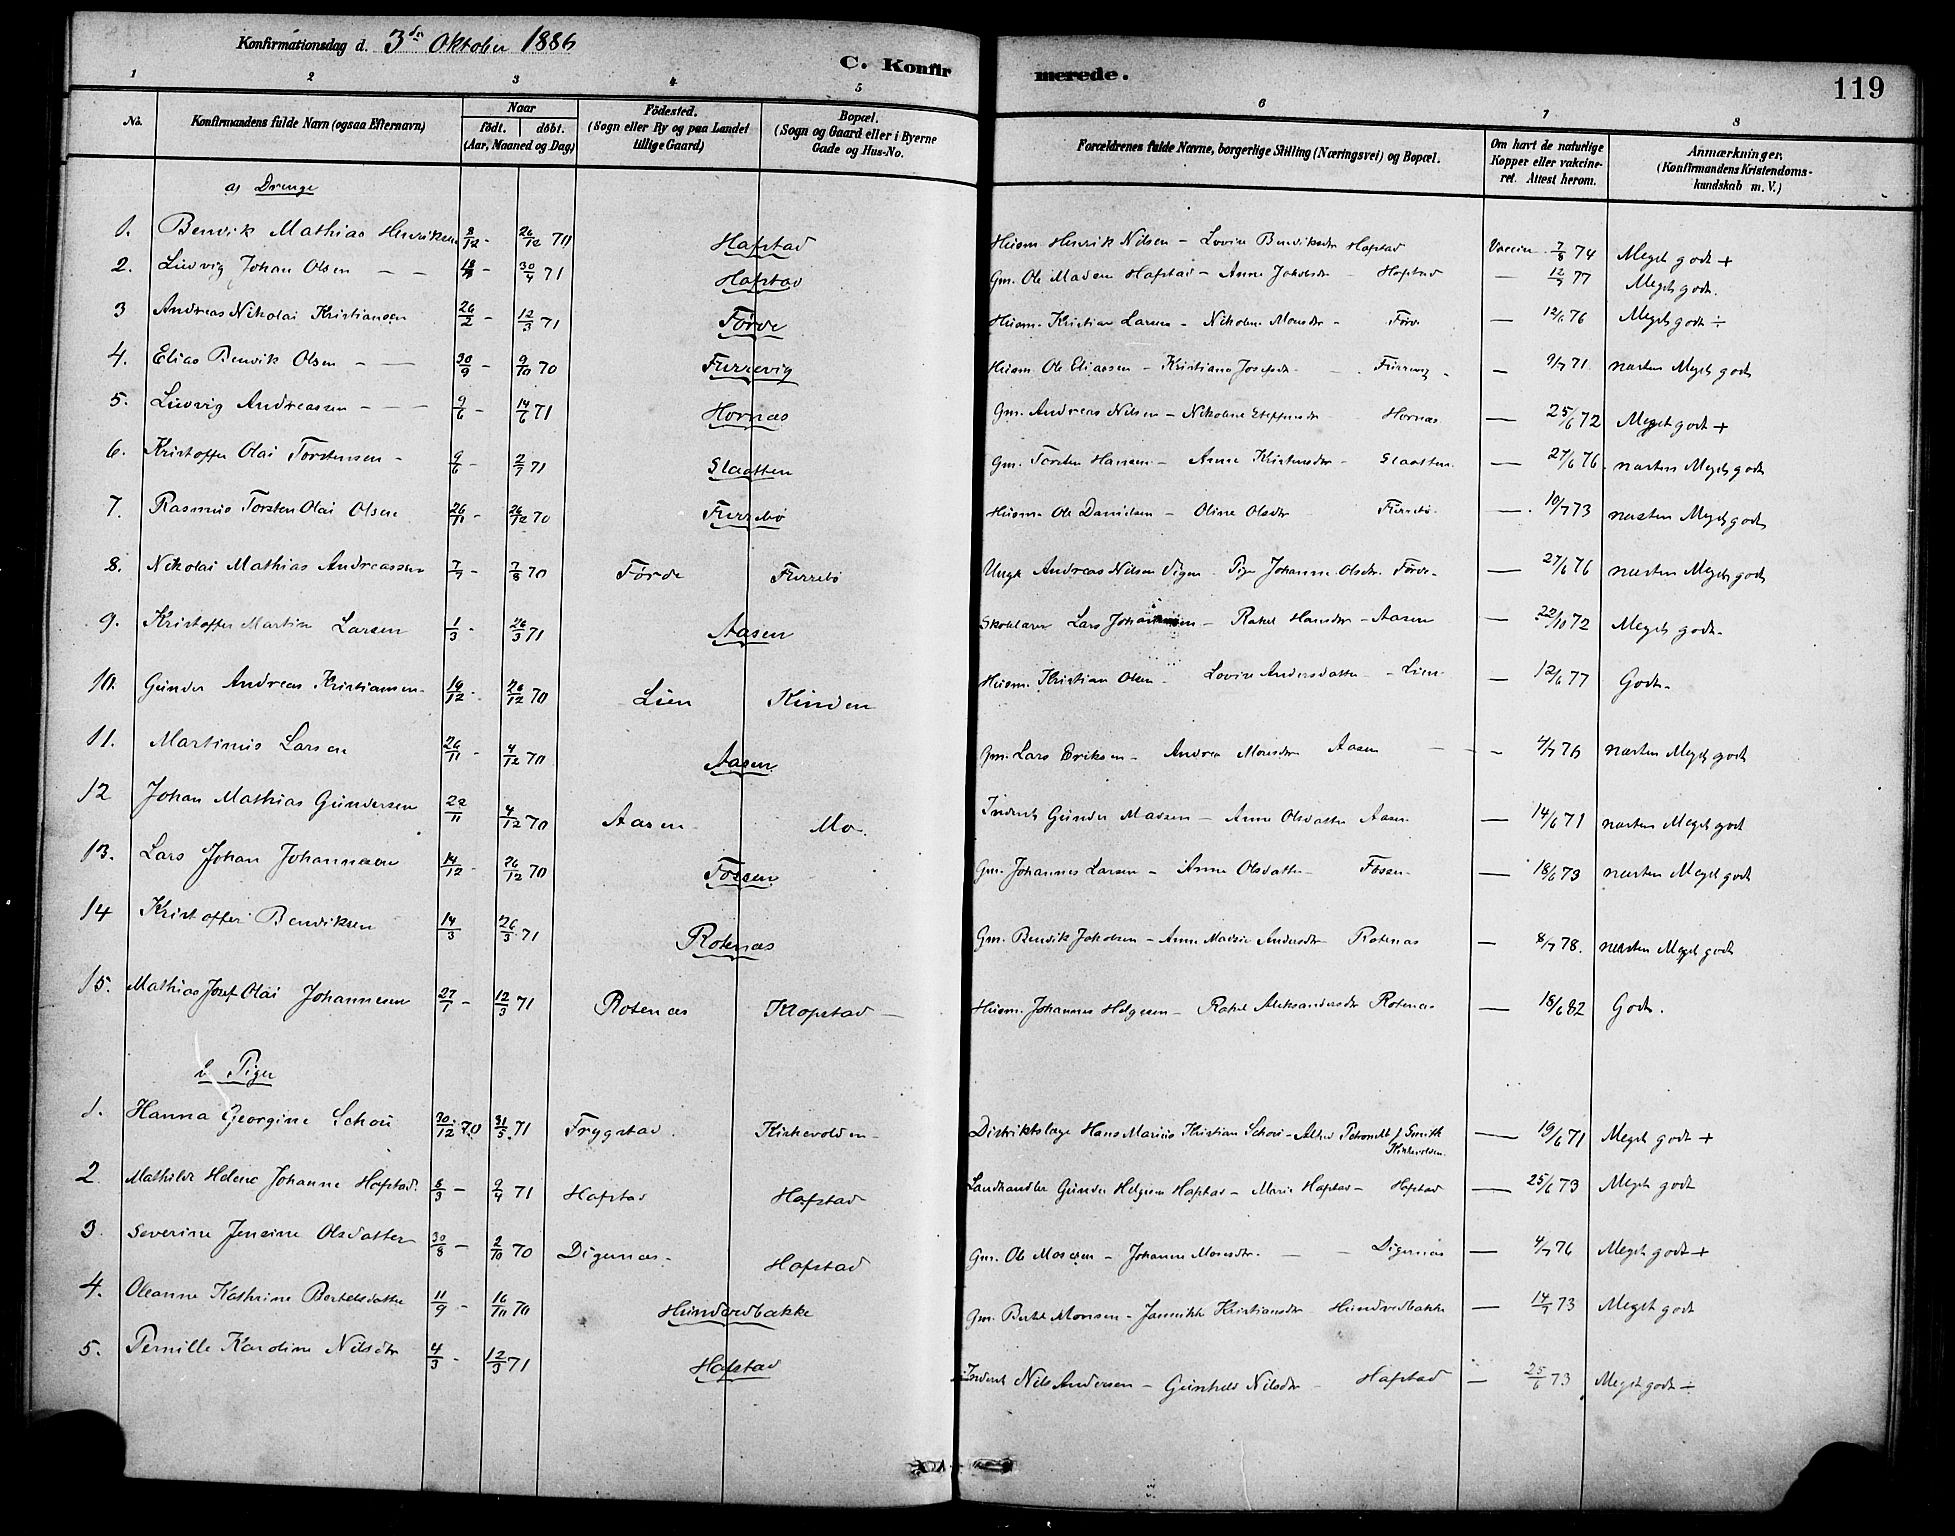 Konfirmationsdag d. 3die Oktober 1886
C. Konfirmerede.
119
1 2 3 4 5 6 7 8
No. | Konfirmandens fulde Navn (ogsaa Efternavn) | Naar födt. döbt. (Aar, Maaned og Dag) | Födested. (Sogn eller By og paa Landet tillige Gaard) | Bopæl. (Sogn og Gaard eller i Byerne Gade og Hus-No. | Forældrenes fulde Navne, borgerlige Stilling (Næringsvei) og Bopæl. | Om havt de naturlige Kopper eller vakcineret. Attest herom. | Anmærkninger. (Konfirmandens Kristendomskundskab m. V.)
a) Drenge
1. Benvik Mathias Henriksen 8/12 - 26/12 70 Hafstad Husm. Henrik Nilsen - Lovise Benviksdr Hafstad Vaccin. 7/8 74 Meget godt +
2. Ludvig Johan Olsen - - - 30/4 71 Hafstad Gm. Ole Madsen Hafstad - Anne Jakobsdr - Hafstad - 12/7 77 Meget godt.
3 Andreas Nikolai Kristiansen 26/2 - 12/3 71 Førde Husm. Kristian Larsen - Nikoline Monsdr - Førde - 12/6 76 Meget godt ÷
4. Elias Benvik Olsen - - 30/9 - 9/10 70 Furrevig Husm. Ole Eliassen - Kristiane Josefsdr - Furrevig - - 9/7 71 næsten Meget godt
5. Ludvig Andreassen - - 9/6 - 14/6 71 Hornæs Gm. Andreas Nilsen - Nikoline Steffensdr Hornæs - 25/6 72 Meget godt +
6. Kristoffer Olai Torstensen - 9/6 - 2/7 71 Slaatten Gm. Torsten Hansen - Anne Kristensdr - Slaatten - 27/6 76. næsten Meget godt
7. Rasmus Torsten Olai Olsen 26/11 - 26/12 70 Furrebø Husm. Ole Danielsen - Oline Olsdr Furrebø - 10/7 73 næsten Meget godt
8. Nikolai Mathias Andreassen 7/7 - 7/8 70 Førde Furrebø Ungk Andreas Nilsen Vigen - Pige Johanne Olsdr. Førde - - 27/6 76 næsten Meget godt
9. Kristoffer Martin Larsen 1/3 - 26/3 71 Aasen Skolelærer Lars Johannesen - Rakel Hansdr - Aasen - 22/10 72 Meget godt -
10. Gunder Andreas Kristiansen 16/12 - 26/12 70 Lien Kinden Husm. Kristian Olsen - Lovise Andersdatter - Lien - 12/6 77 Godt -
11. Martinus Larsen 26/11 - 4/12 70 Aasen Gm. Lars Eriksen - Andrea Monsdr Aasen - - 4/7 76 næsten Meget godt
12 Johan Mathias Gundersen 22/11 4/12 70 Aasen Mo. Inderst Gunder Madsen - Anne Olsdatter Aasen - 14/6 71 næsten Meget godt
13. Lars Johan Johannesen 14/12 - 26/12 70 Fossen Gm. Johannes Larsen - Anne Olsdatter - Fossen - 18/6 73 næsten Meget godt
14 Kristoffer Benviksen 14/3 26/3 71 Rotenæs Gm. Benvik Jakobsen - Anne Madsine Andersdr Rotenæs - 8/7 78. næsten Meget godt
15. Mathias Josef Olai Johannesen 27/1 - 12/3 71 Rotenæs Klopstad - Husm. Johannes Helgesen - Rakel Aleksandersdr Rotenæs - 18/6 82 Godt.
b Piger
1. Hanna Georgine Schou 30/12 70 31/5 71 Frygstad. Kirkevolden - Distriktslæge Hans Marius Kristian Schou - f. Smith Kirkevolden. - 19/6 71 Meget godt +
2. Mathilde Helene Johanne Hafstad. 8/3 - 9/4 71 Hafstad Hafstad Landhandler Gunder Helgesen Hafstad - Marie Hafstad - Hafstad - 25/6 73 Meget godt
3. Severine Jensine Olsdatter 30/8 - 2/10 70 Digernæs. Hafstad Gm. Ole Mosesen - Johanne Monsdtr. - - Digernæs - 4/7 76 Meget godt +
4. Oleanne Kathrine Bertelsdatter 11/9 - 16/10 70 Hundvedbakke Gm. Bertel Monsen - Jannikke Kristiansdr Hundvedbakke - 14/7 73 Meget godt
5. Pernille Karoline Nilsdtr 4/3 - 12/3 71 Hafstad Inderst Nils Andersen - Gunhild Nilsdtr - Hafstad - 25/6 73 Meget godt ÷